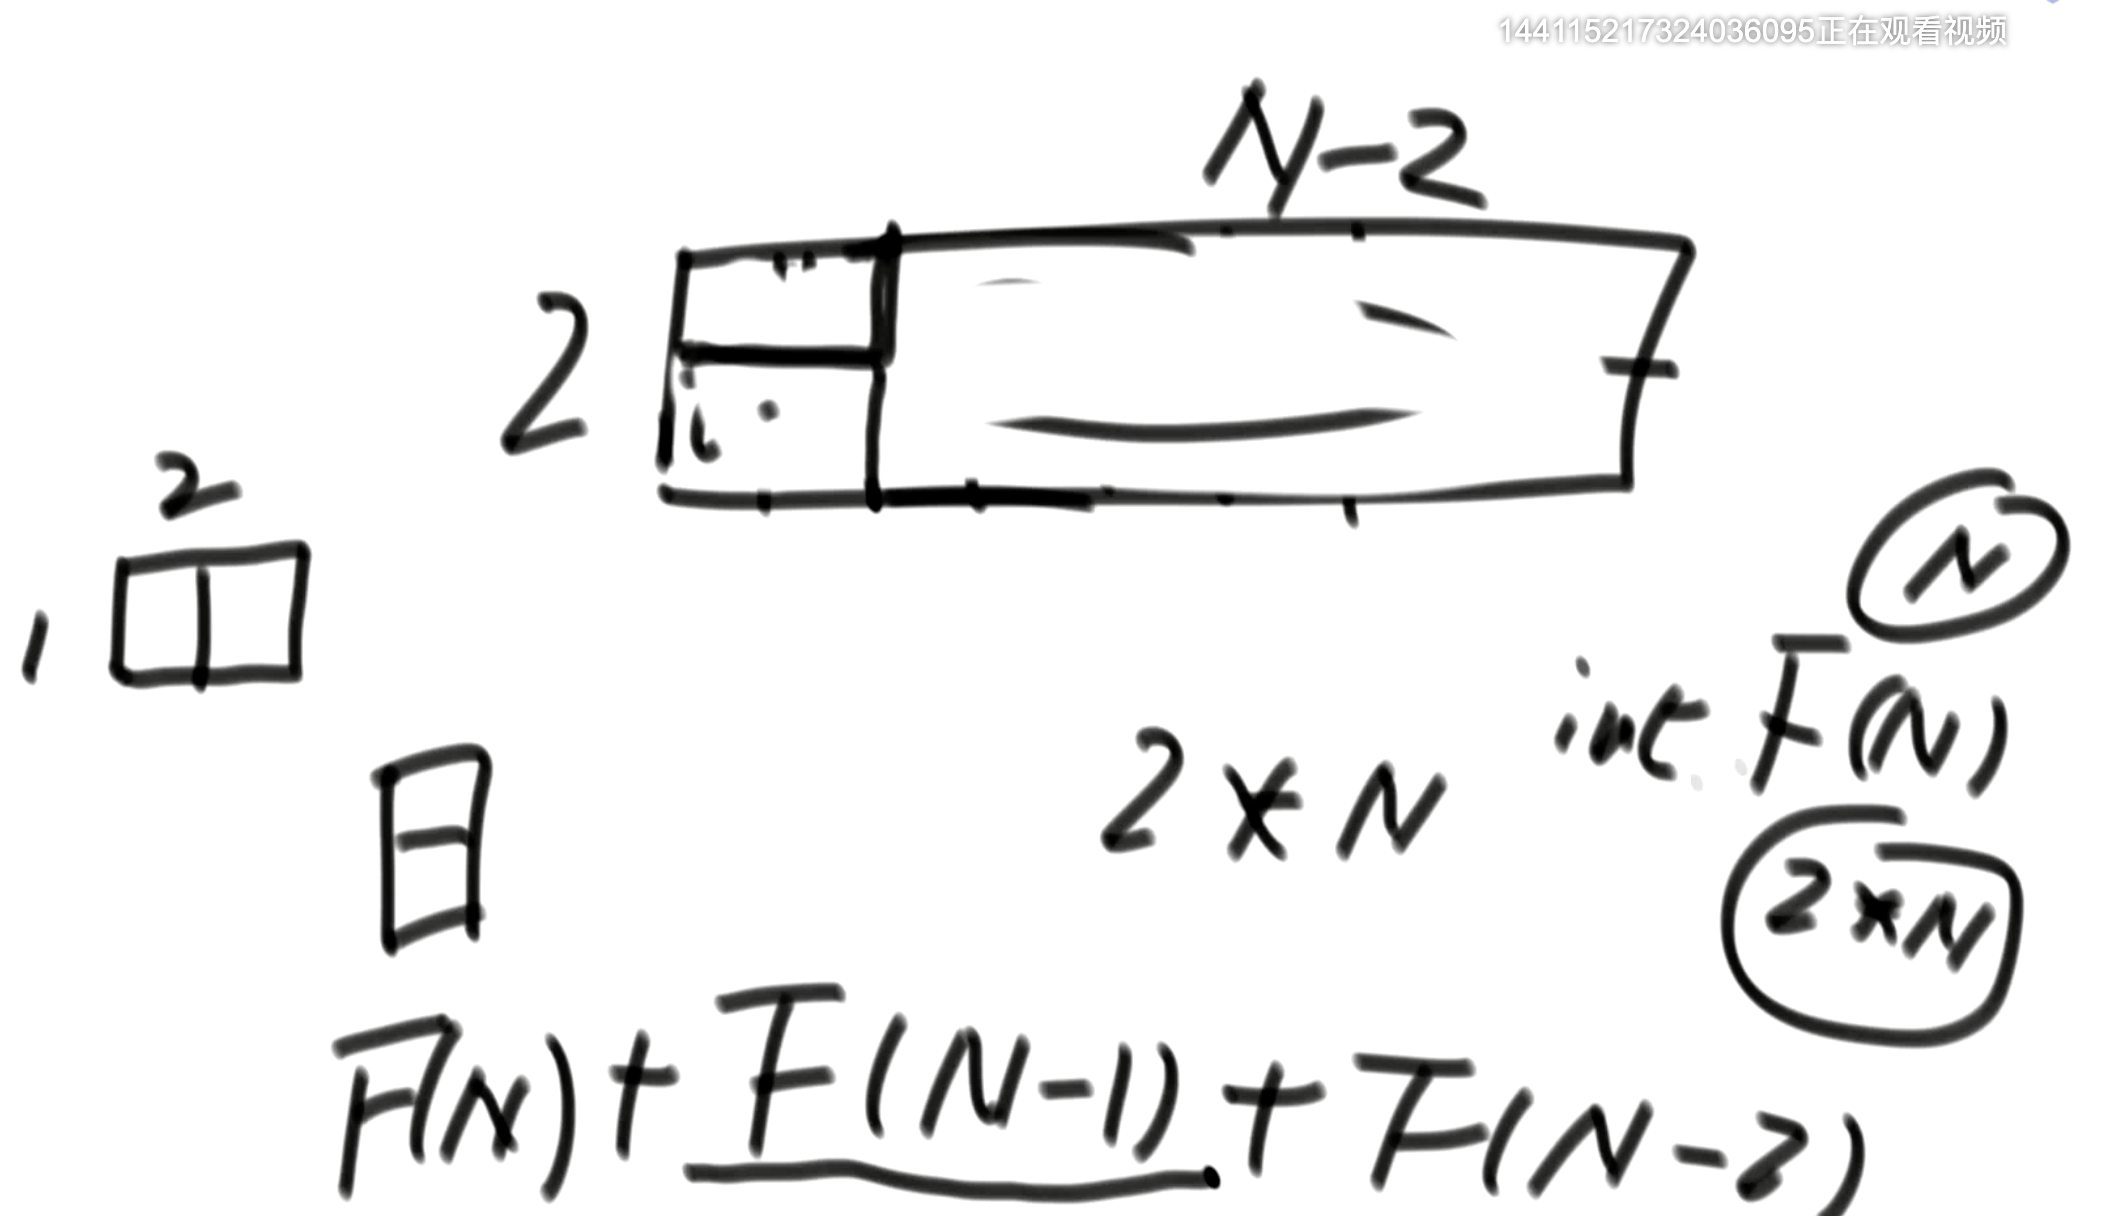 144115217324036095正在观看视频
N-2
2
2
1
N
int F(N)
2*N
2*N
F(N)+F(N-1)+F(N-2)